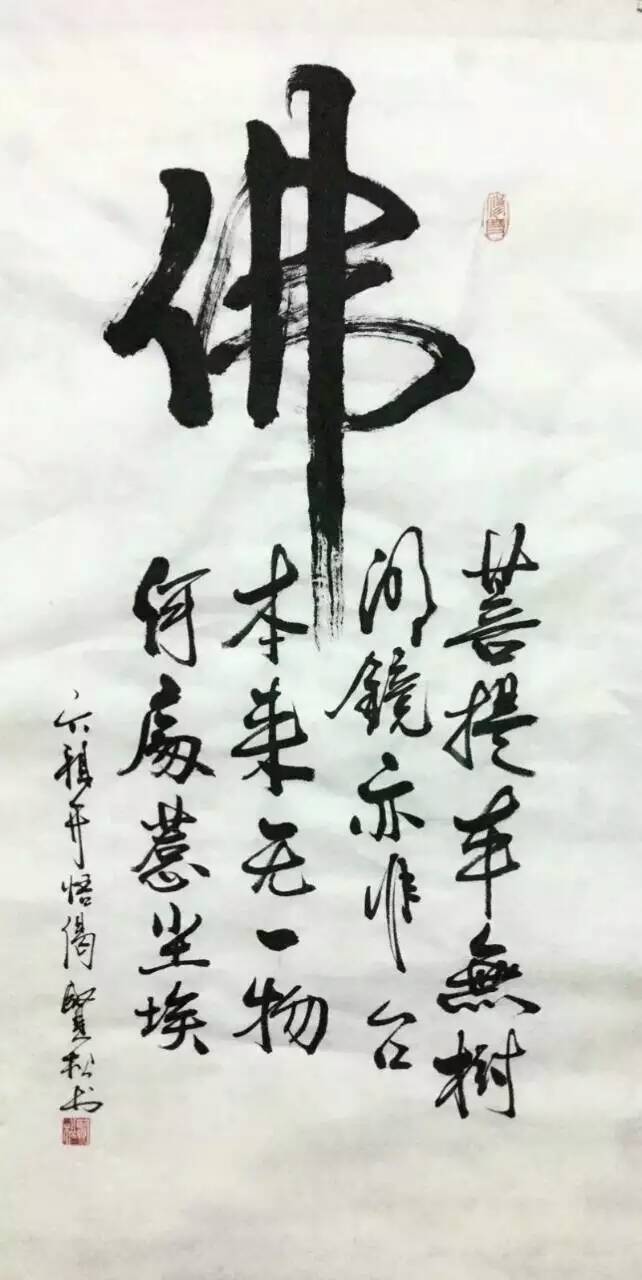 佛
菩提本無樹
明鏡亦非台
本来无一物
何處惹尘埃
六祖开悟偈 松书